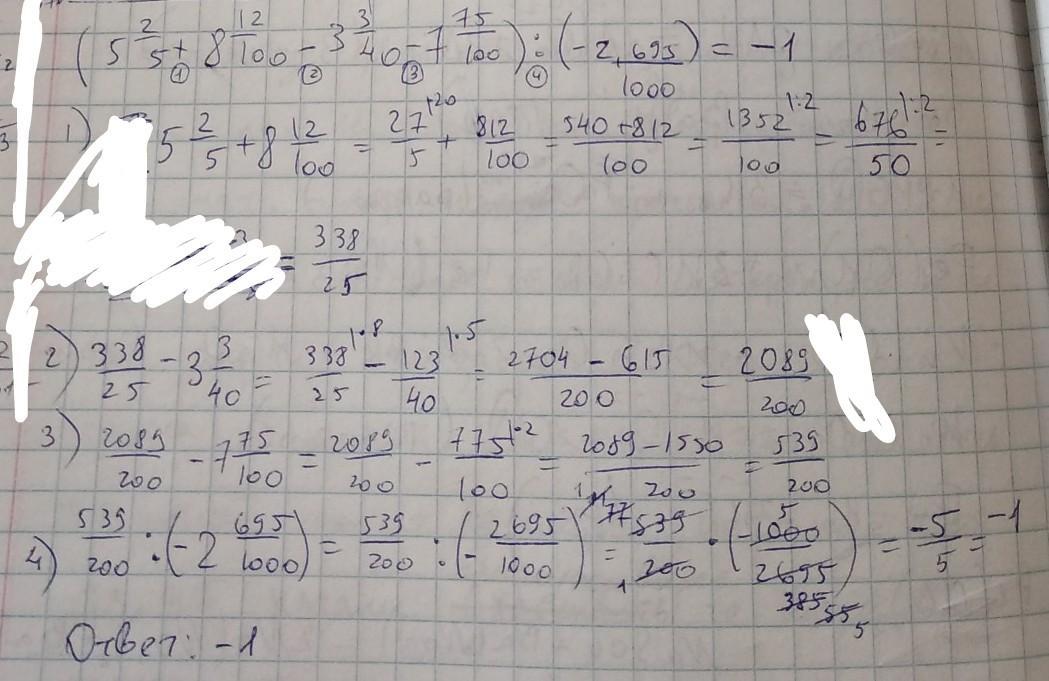 (5 2/5 + 8 12/100 - 3 3/40 - 7 75/100) : (-2 695/1000) = -1
① ② ③ ④
1) 5 2/5 + 8 12/100 = 27/5 |·20 + 812/100 = 540+812/100 = 1352/100 |:2 = 676/50 |:2 =
= 338/25
2) 338/25 - 3 3/40 = 338/25 |·8 - 123/40 |·5 = 2704 - 615/200 = 2089/200
3) 2089/200 - 7 75/100 = 2089/200 - 775/100 |·2 = 2089-1550/200 = 539/200
4) 539/200 : (-2 695/1000) = 539/200 : (-2695/1000) = 539/200 · (-1000/2695) = -5/5 = -1
Ответ: -1